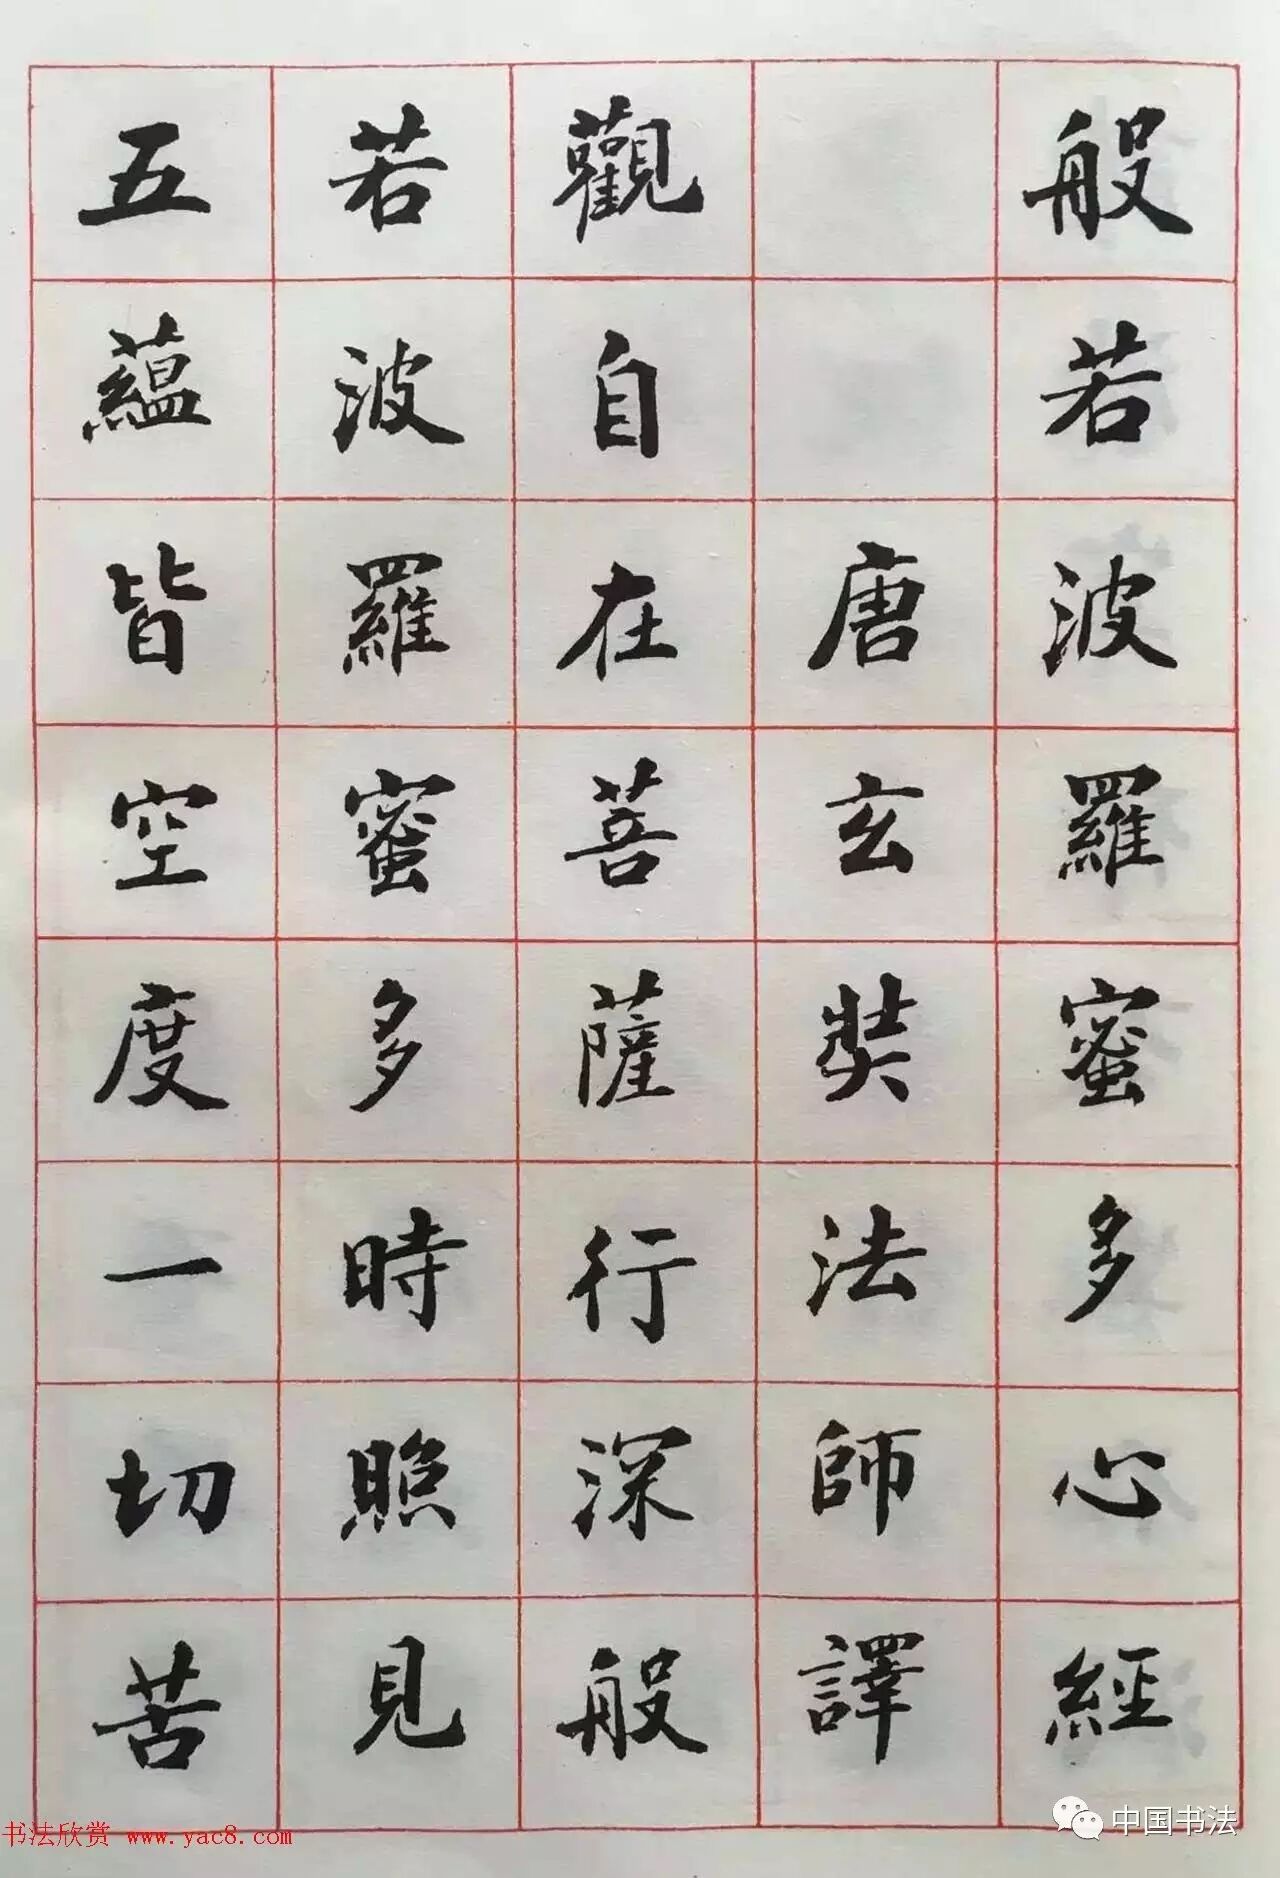 般若波羅蜜多心經
唐玄奘法師譯
觀自在菩薩行深般
若波羅蜜多時照見
五蘊皆空度一切苦
书法欣赏 www.yac8.com
中国书法